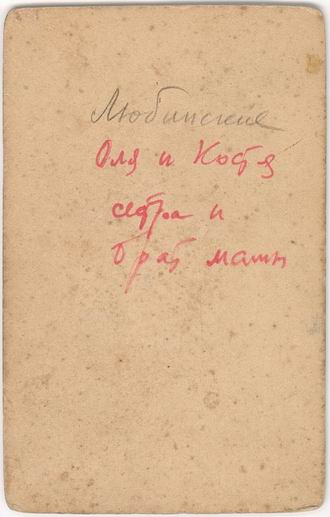 Любинские
Оля и Костя
сестра и
брат мамы